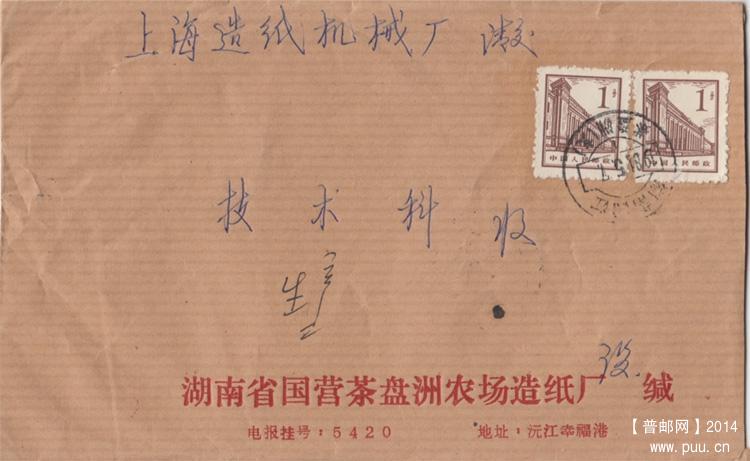 上海造纸机械厂
1分 1分
中国人民邮政 中国人民邮政
技术科 收
湖南省国营茶盘洲农场造纸厂 缄
电报挂号：5420 地址：沅江幸福港
【普邮网】2014
www.puu.cn